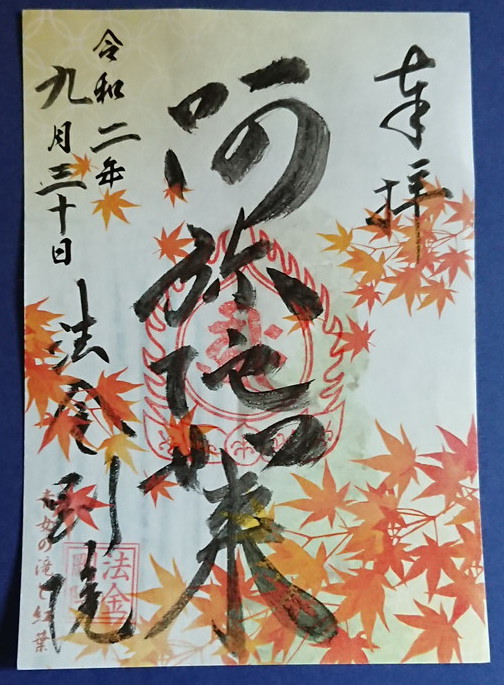 奉拝
阿弥陀如来
令和二年
九月三十日
法金剛院
法金剛院
青女の滝と紅葉